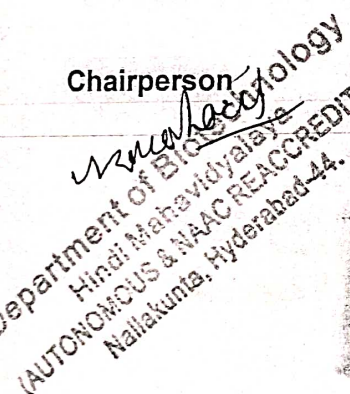 Chairperson
Department of Biotechnology
Hindi Mahavidyalaya
(AUTONOMOUS & NAAC REACCREDIT
Nallakunta, Hyderabad-44.